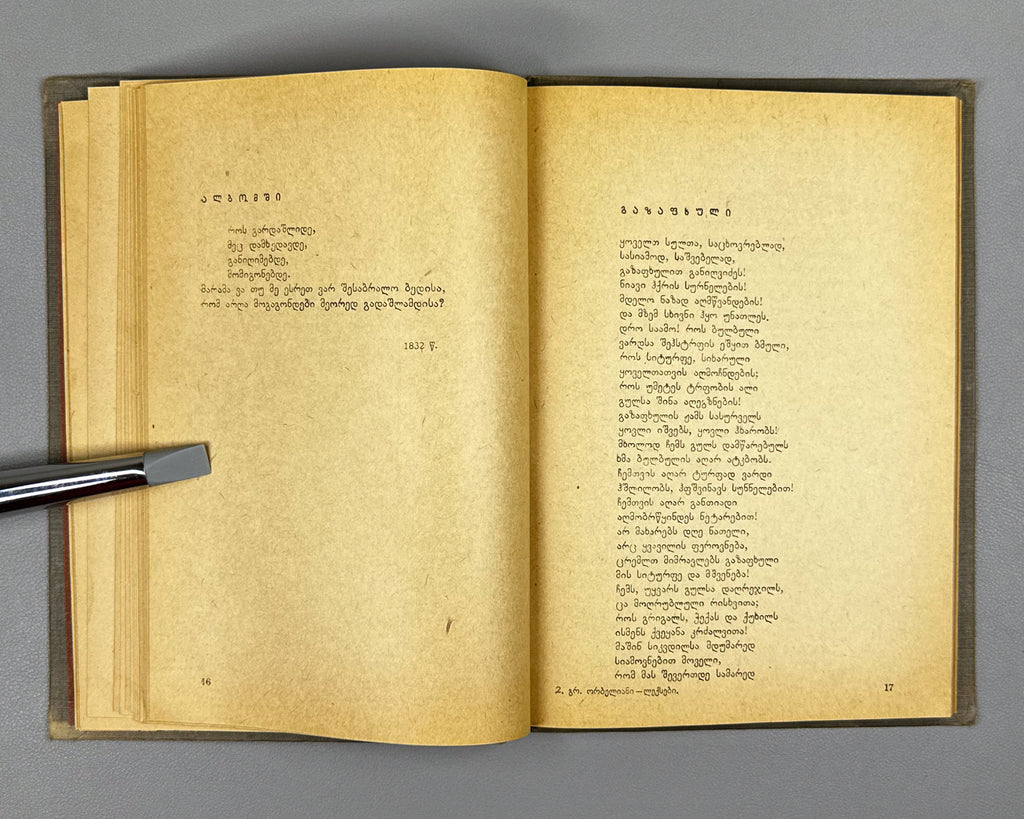 ალბომში
როს გარდაშლიდე,
მეც დამხედავდე,
განიღიმებდე,
მომიგონებდე.
მარამა ვა თუ მე ესრეთ ვარ შესაბრალო ბედისა,
რომ არღა მოგაგონდები მეორედ გადაშლამდისა?
1832 წ.
16
გაზაფხული
ყოველთ სულთა, საცხოვრებლად,
სასიამოდ, საშვებელად,
გაზაფხულით განიღვიძეს!
ნიავი ჰქრის სურნელების!
მდელო ნაზად აღმწვანდების!
და მზემ სხივნი ჰყო უნათლეს.
დრო საამო! როს ბულბული
ვარდსა შეჰსტრფის ეშყით ბმული,
როს სიტურფე, სიხარული
ყოველთათვის აღმოჩნდების;
როს უმეტეს ტრფობის ალი
გულსა შინა აღეგზნების!
გაზაფხულის ჟამს სასურველს
ყოვლი იშვებს, ყოვლი ჰხარობს!
მხოლოდ ჩემს გულს დამწარებულს
ხმა ბულბულის აღარ ატკბობს.
ჩემთვის აღარ ტურფად ვარდი
ჰშლილობს, ჰფშვინავს სუნნელებით!
ჩემთვის აღარ განთიადი
აღმობრწყინდეს ნეტარებით!
არ მახარებს დღე ნათელი,
არც ყვავილის ფეროვნება,
ცრემლთ მიმრავლებს გაზაფხული
მის სიტურფე და მშვენება!
ჩემს, უყვარს გულსა დაღრეჯილს,
ცა მოღრუბლული რისხვითა;
როს გრიგალს, ჭექას და ქუხილს
ისმენს ქვეყანა კრძალვითა!
მაშინ სიკვდილსა მდუმარედ
სიამოვნებით მოველი,
რომ მას შევერთდე სამარედ
2. გრ. ორბელიანი — ლექსები.
17